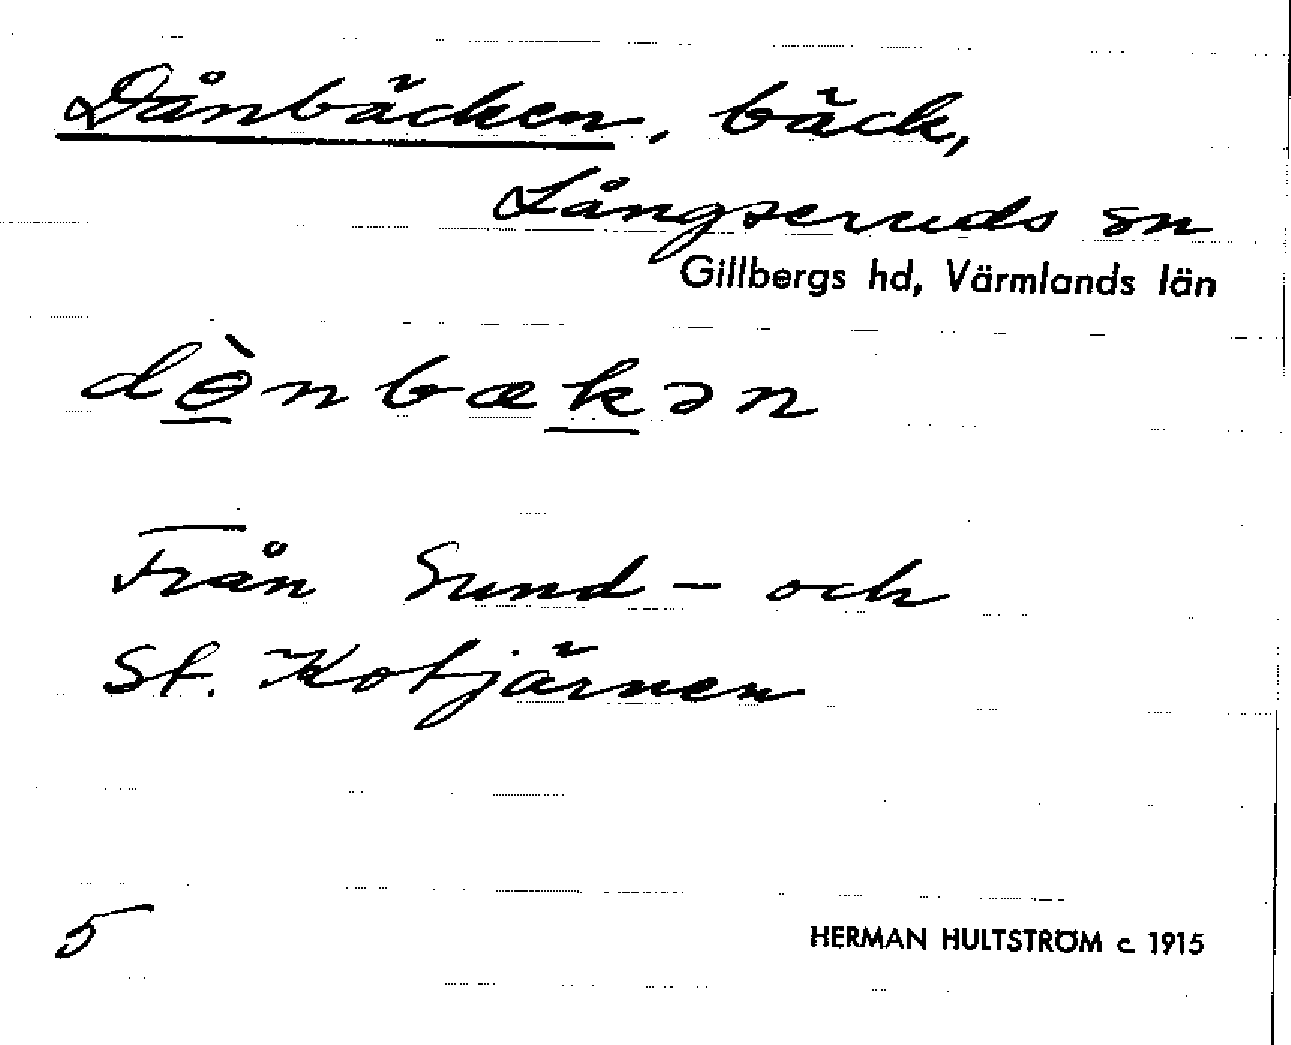 Dånbäcken, bäck,
Långseruds sn
Gillbergs hd, Värmlands län
dɵ̀nbækən
Från Sund- och
St. Kotjärnen
5
HERMAN HULTSTRÖM c. 1915